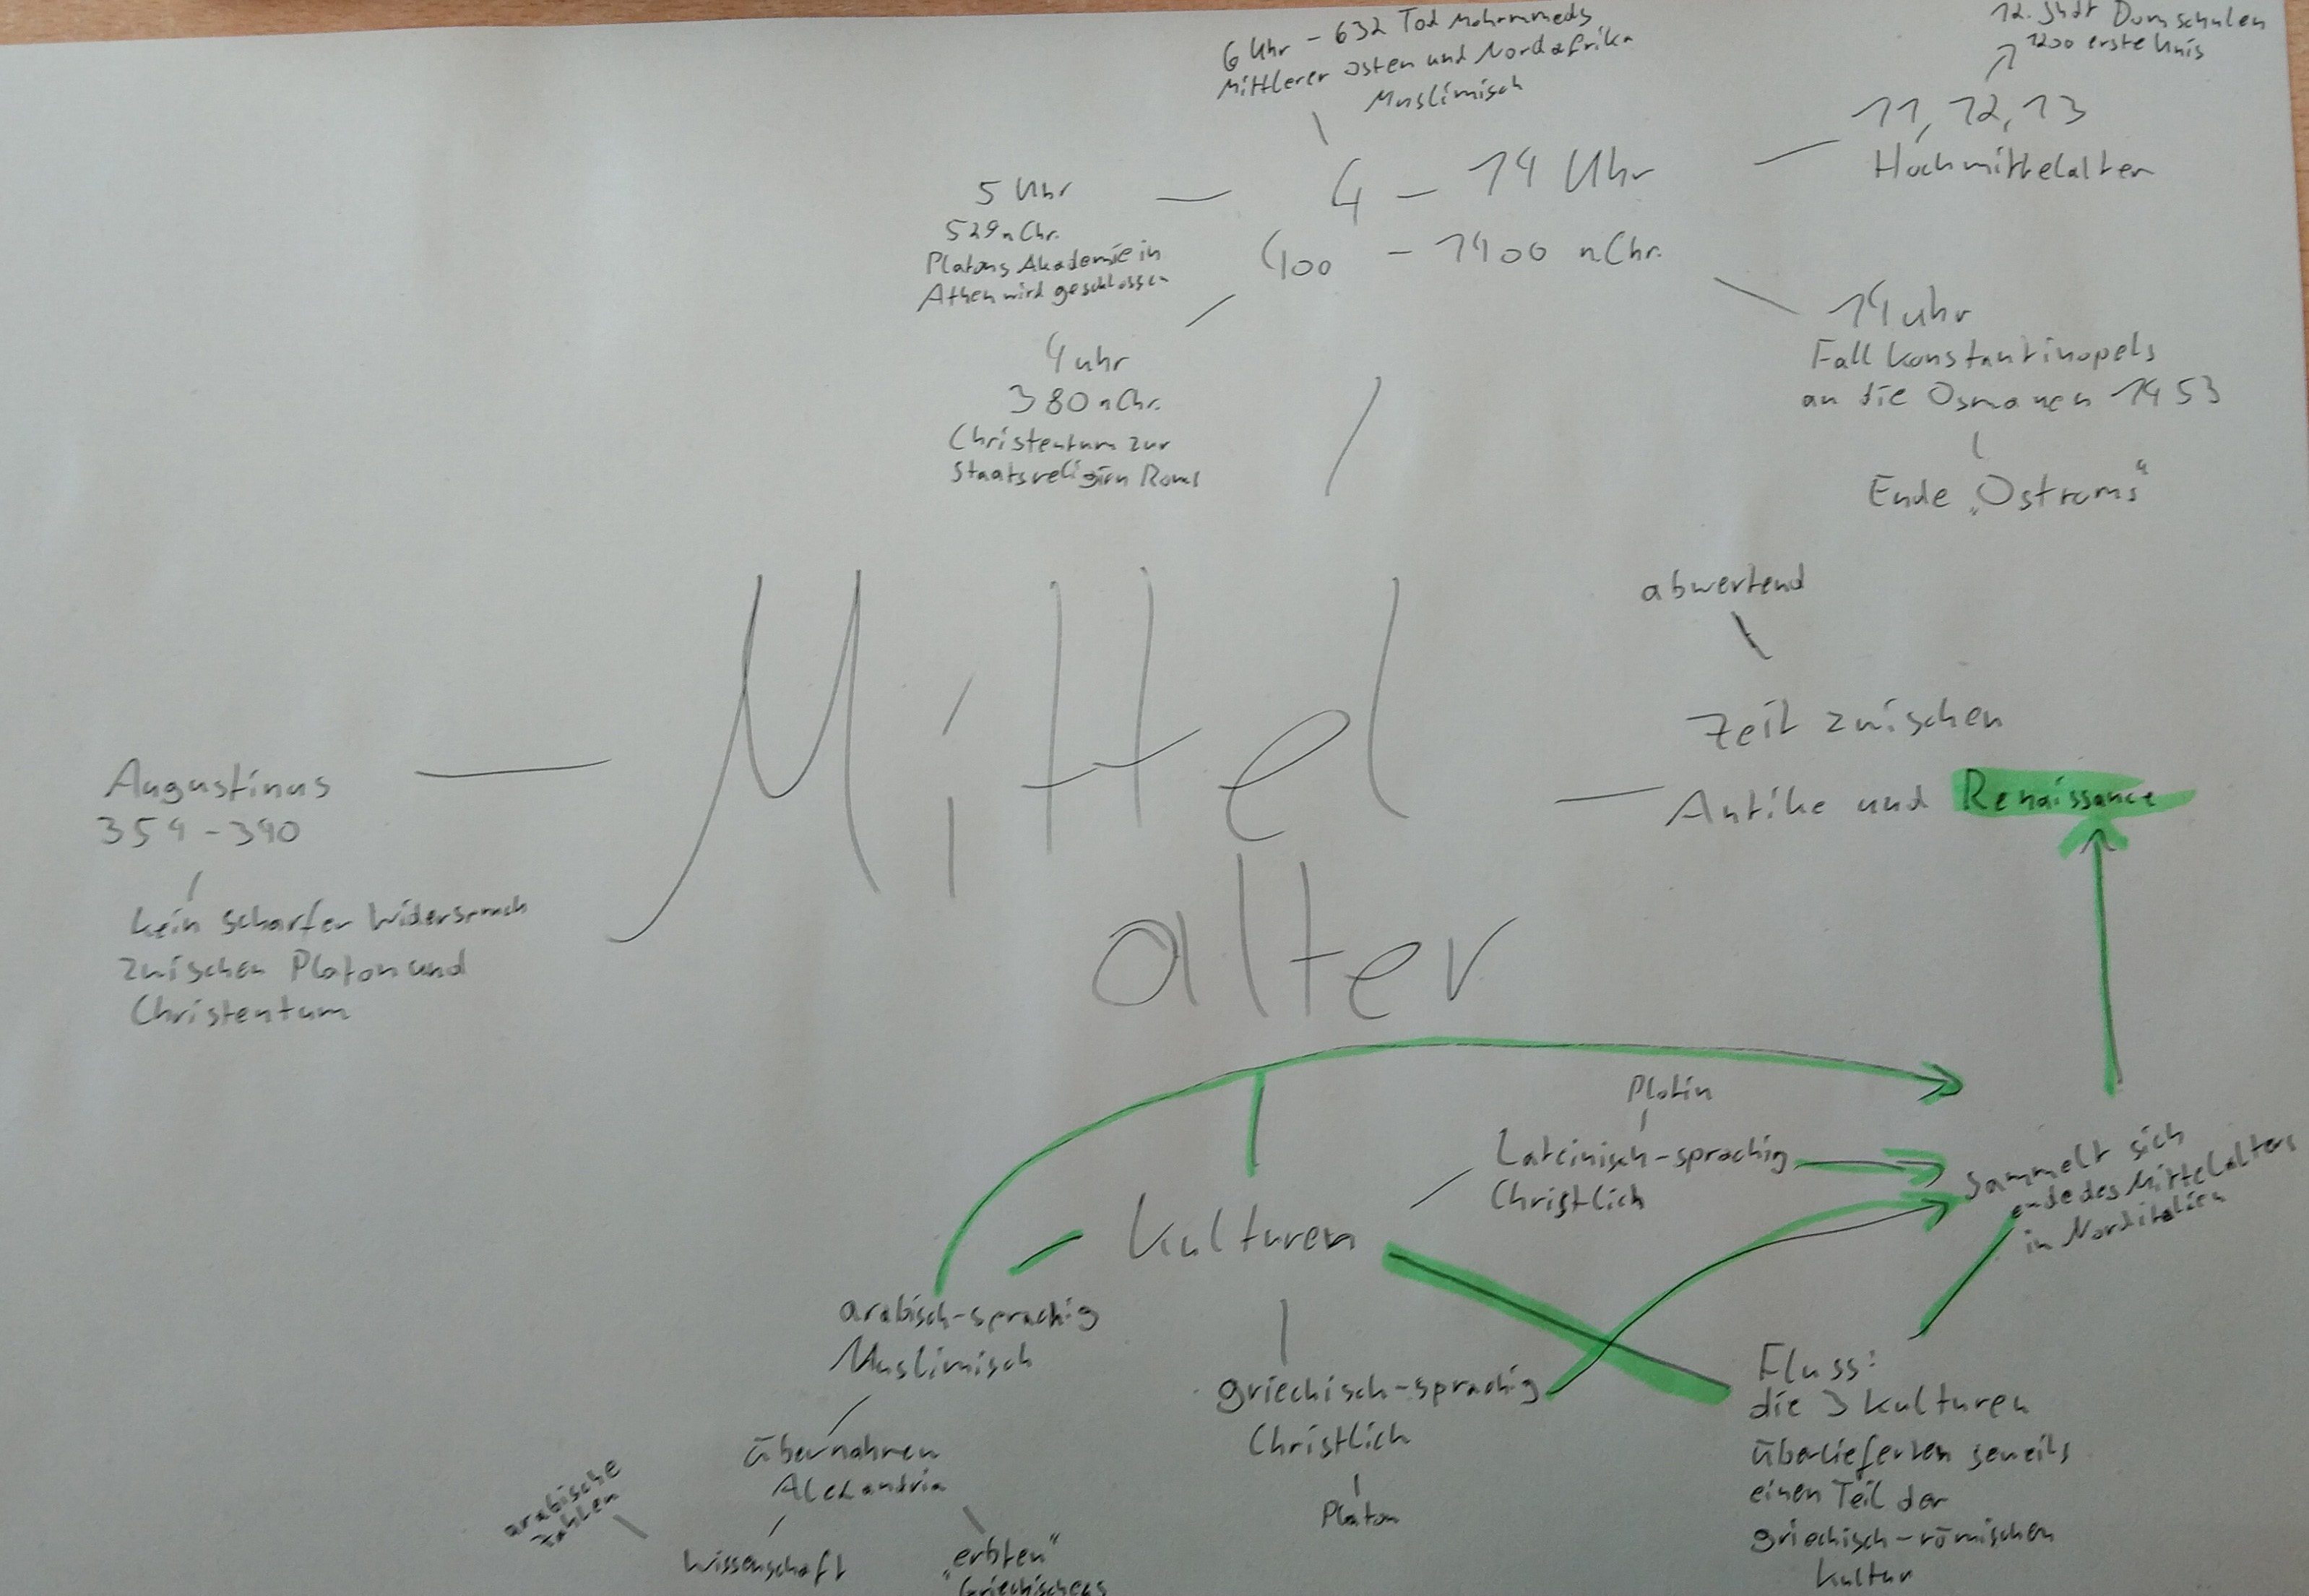 6 Uhr – 632 Tod Mohammeds
Mittlerer Osten und Nordafrika
Muslimisch
12. Jhdt Domschulen
1200 erste Unis
11, 12, 13
Hochmittelalter
5 Uhr
529 n Chr.
Platons Akademie in
Athen wird geschlossen
4 – 14 Uhr
400 – 1400 n Chr.
4 uhr
380 n Chr.
Christentum zur
Staatsreligion Roms
14 uhr
Fall Konstantinopels
an die Osmanen 1453
Ende „Ostroms“
abwertend
Zeit zwischen
Antike und Renaissance
Mittel
alter
Augustinus
354 – 390
kein scharfer Widerspruch
zwischen Platon und
Christentum
Plotin
Lateinisch-sprachig
Christlich
sammelt sich
ende des Mittelalters
in Norditalien
Kulturen
arabisch-sprachig
Muslimisch
übernahmen
Alexandria
arabische
Zahlen
Wissenschaft
„erbten“
Griechisch-sprachig
Christlich
Platon
Fluss:
die 3 Kulturen
überlieferten jeweils
einen Teil der
griechisch-römischen
Kultur